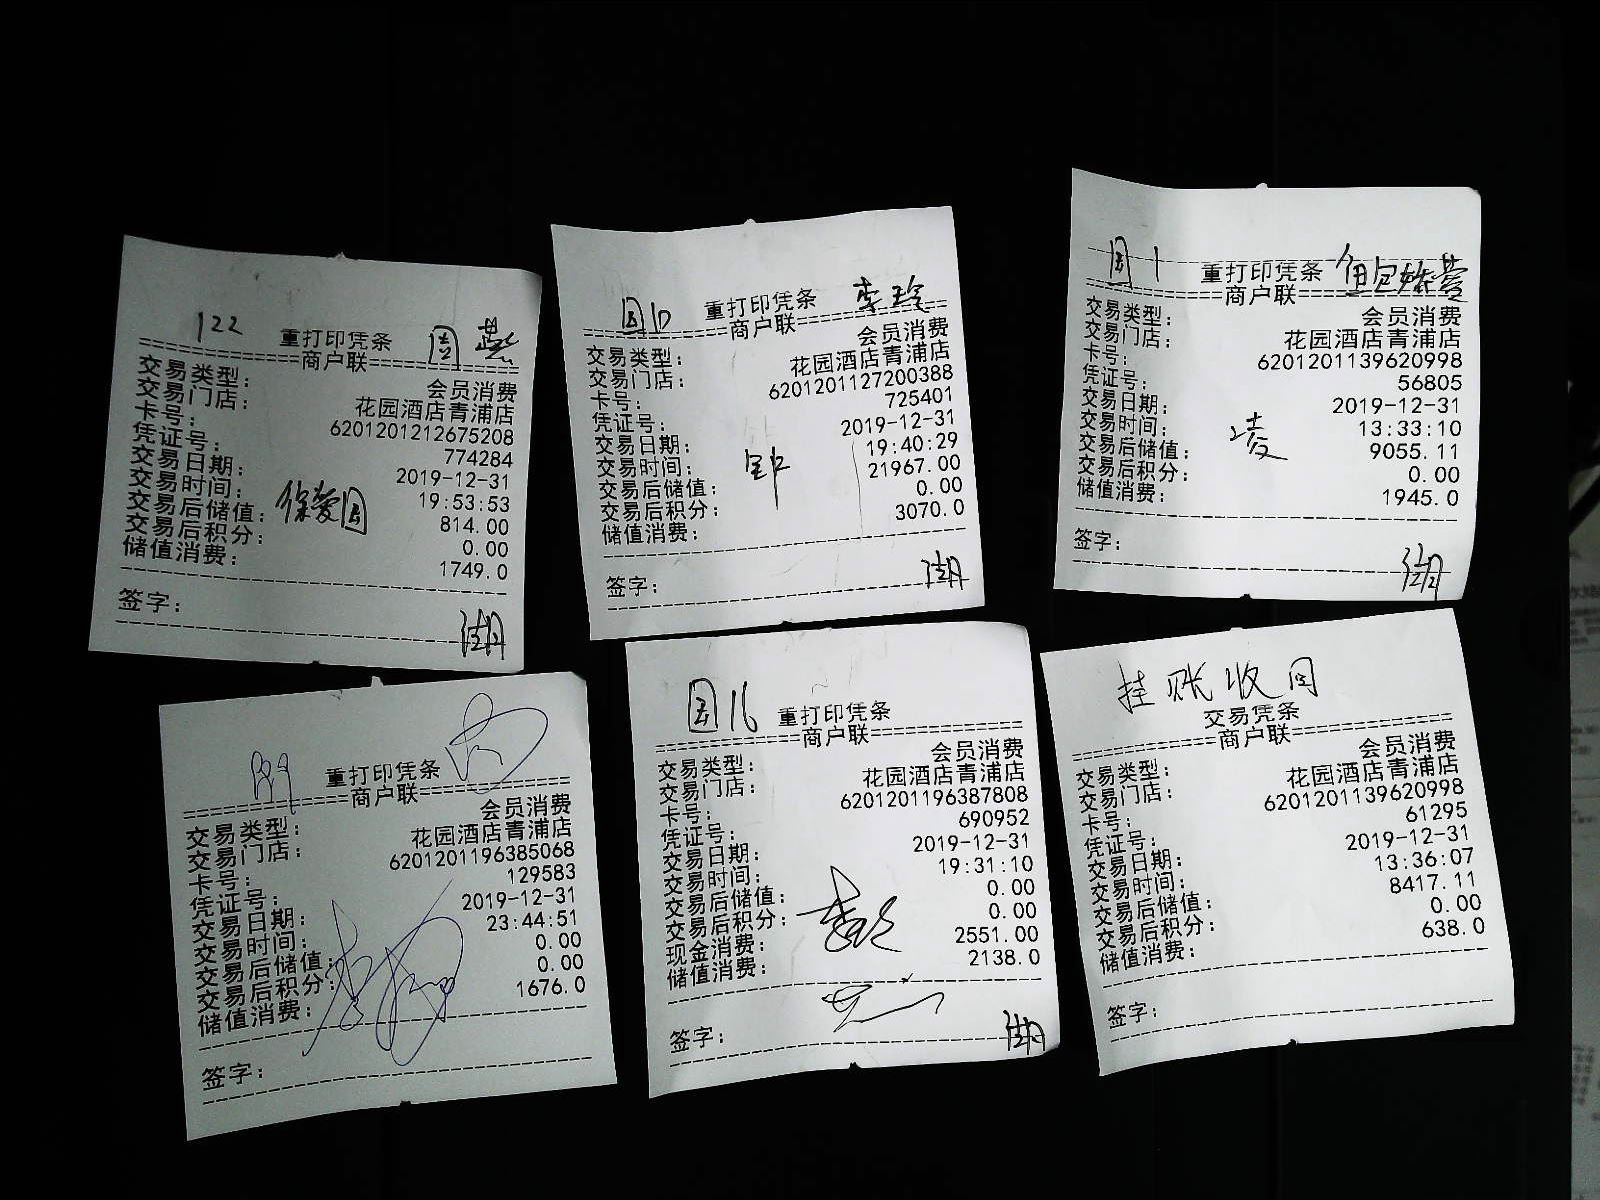 122
重打印凭条
商户联
交易类型： 会员消费
交易门店： 花园酒店青浦店
卡号： 6201201212675208
凭证号： 774284
交易日期： 2019-12-31
交易时间： 19:53:53
交易后储值： 814.00
交易后积分： 0.00
储值消费： 1749.0
签字：
李玲
重打印凭条
商户联
交易类型： 会员消费
交易门店： 花园酒店青浦店
卡号： 6201201127200388
凭证号： 725401
交易日期： 2019-12-31
交易时间： 19:40:29
交易后储值： 21967.00
交易后积分： 0.00
储值消费： 3070.0
签字：
重打印凭条
商户联
交易类型： 会员消费
交易门店： 花园酒店青浦店
卡号： 6201201139620998
凭证号： 56805
交易日期： 2019-12-31
交易时间： 13:33:10
交易后储值： 9055.11
交易后积分： 0.00
储值消费： 1945.0
凌
签字：
重打印凭条
商户联
交易类型： 会员消费
交易门店： 花园酒店青浦店
卡号： 6201201196385068
凭证号： 129583
交易日期： 2019-12-31
交易时间： 23:44:51
交易后储值： 0.00
交易后积分： 0.00
储值消费： 1676.0
签字：
16
重打印凭条
商户联
交易类型： 会员消费
交易门店： 花园酒店青浦店
卡号： 6201201196387808
凭证号： 690952
交易日期： 2019-12-31
交易时间： 19:31:10
交易后储值： 0.00
交易后积分： 0.00
现金消费： 2551.00
储值消费： 2138.0
签字：
挂账收回
交易凭条
商户联
交易类型： 会员消费
交易门店： 花园酒店青浦店
卡号： 6201201139620998
凭证号： 61295
交易日期： 2019-12-31
交易时间： 13:36:07
交易后储值： 8417.11
交易后积分： 0.00
储值消费： 638.0
签字：